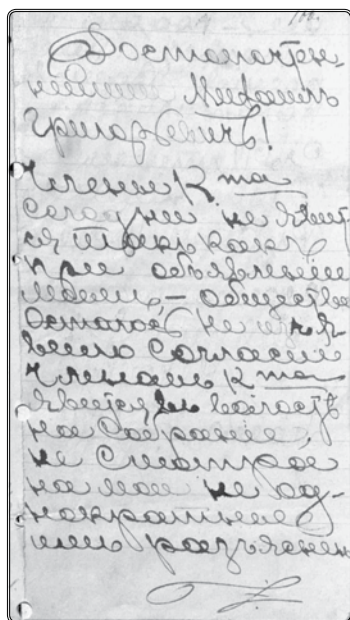 Достопочтен-
нейший Михаилъ
Григорьевичъ!
Члены К та
сегодня не явит
ся такъ какъ
при объявленiи
моемъ, – общество
осталось не изъя
вило согласие
членамъ К та
явится въ волость
на собрание,
не смотря
на мои не од-
нократные
имъ разъяснен